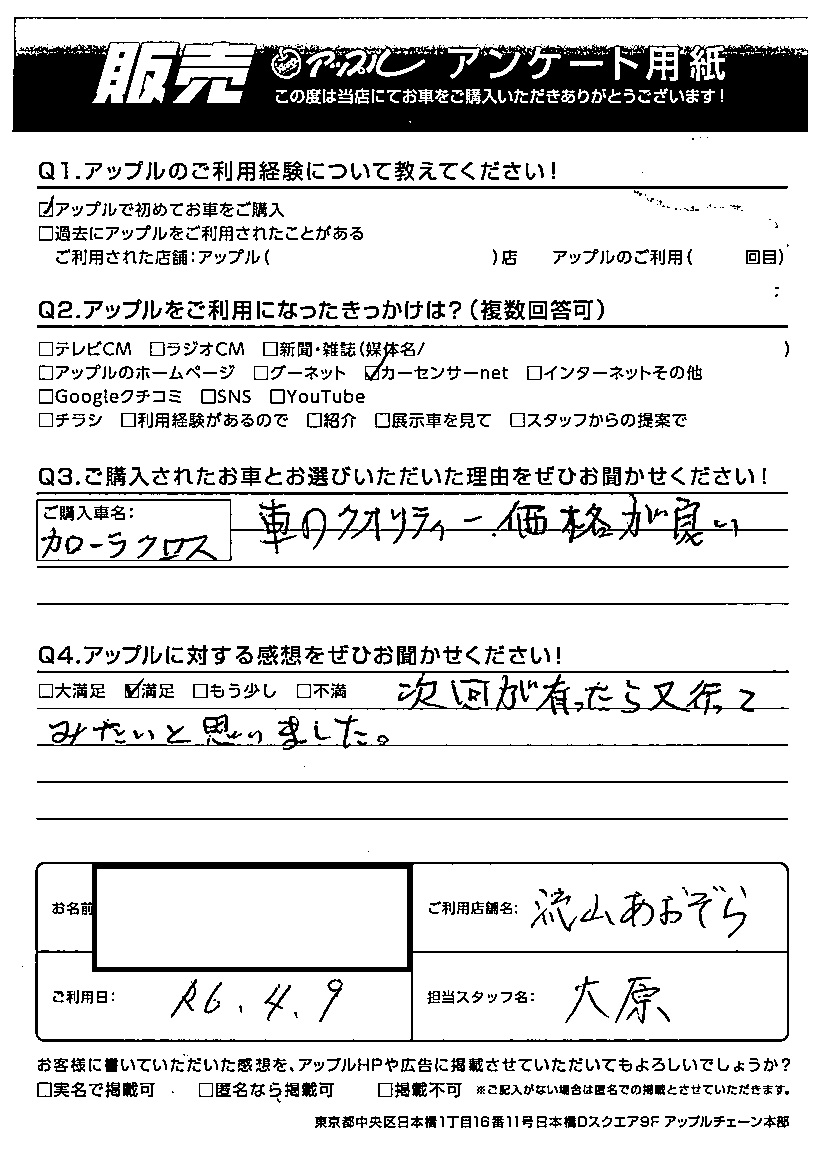 販売 アップル アンケート用紙
この度は当店にてお車をご購入いただきありがとうございます!
Q1.アップルのご利用経験について教えてください!
☑アップルで初めてお車をご購入
□過去にアップルをご利用されたことがある
ご利用された店舗:アップル( )店 アップルのご利用( 回目)
Q2.アップルをご利用になったきっかけは?(複数回答可)
□テレビCM □ラジオCM □新聞・雑誌(媒体名/ )
□アップルのホームページ □グーネット ☑カーセンサーnet □インターネットその他
□Googleクチコミ □SNS □YouTube
□チラシ □利用経験があるので □紹介 □展示車を見て □スタッフからの提案で
Q3.ご購入されたお車とお選びいただいた理由をぜひお聞かせください!
ご購入車名:
カローラクロス
車のクオリティー、価格が良い
Q4.アップルに対する感想をぜひお聞かせください!
□大満足 ☑満足 □もう少し □不満 次回が有ったら又行って
みたいと思いました。
お名前 ご利用店舗名: 流山あおぞら
ご利用日: R6.4.9 担当スタッフ名: 大原
お客様に書いていただいた感想を、アップルHPや広告に掲載させていただいてもよろしいでしょうか?
□実名で掲載可 □匿名なら掲載可 □掲載不可 ※ご記入がない場合は匿名での掲載とさせていただきます。
東京都中央区日本橋1丁目16番11号日本橋Dスクエア9F アップルチェーン本部